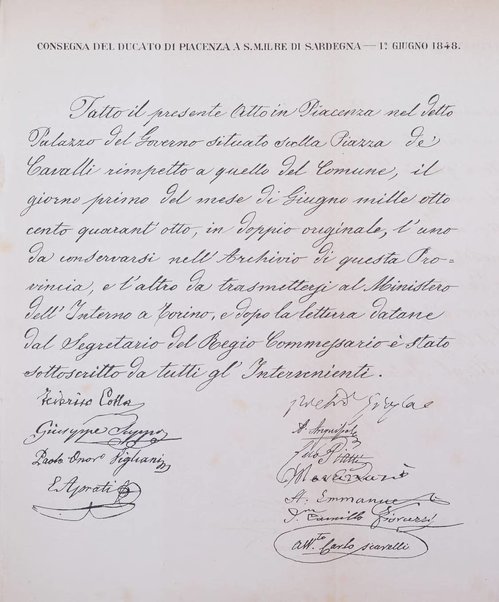 CONSEGNA DEL DUCATO DI PIACENZA A S.M. IL RE DI SARDEGNA — 1º GIUGNO 1848.
Fatto il presente Atto in Piacenza nel detto
Palazzo del Governo situato sulla Piazza de'
Cavalli rimpetto a quello del Comune, il
giorno primo del mese di Giugno mille otto
cento quarant'otto, in doppio originale, l'uno
da conservarsi nell'Archivio di questa Pro-
vincia, e l'altro da trasmettersi al Ministero
dell'Interno a Torino, e dopo la lettura datane
dal Segretario del Regio Commessario è stato
sottoscritto da tutti gl'Intervenienti.
Fabrizio
Giuseppe
Paolo Onor. Vigliani
Pietro
A. Emmanueli
Camillo
Avv.to Carlo